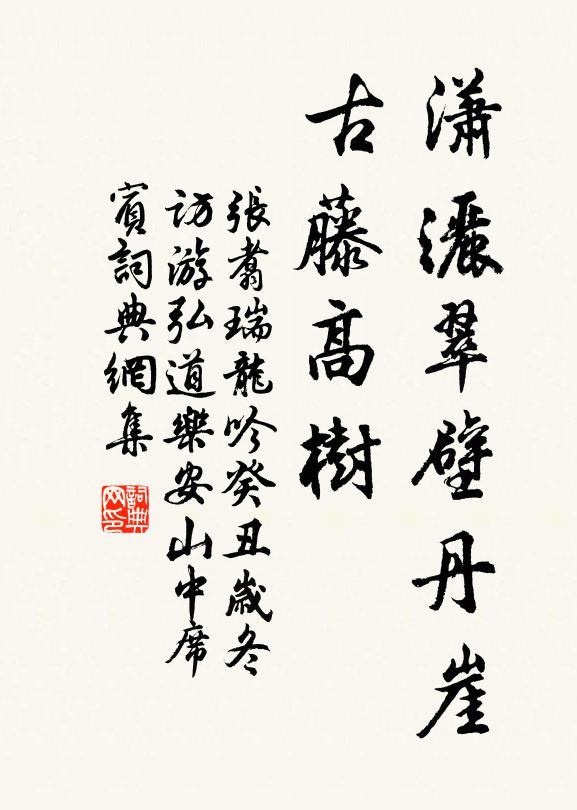 瀟灑翠壁丹崖
古藤高樹
張翥瑞龍吟癸丑歲冬
訪游弘道樂安山中席
賓詞典網集
詞典网印